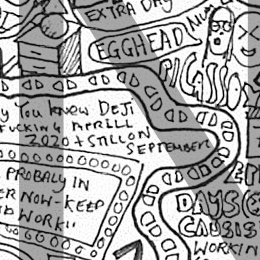 EXTRA DAY
EGGHEAD
PICASSO
Y YOU KNEW DEJI
FUCKING APRILL
2020 + STILL ON
SEPTEMBER
PROBALY IN
ER NOW-KEEP
WORK!!
DAYS
CAUSIS
WORKIN